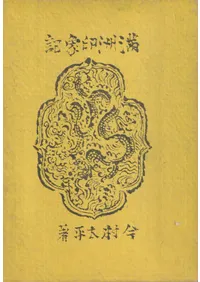 滿洲印象記
今村太平著